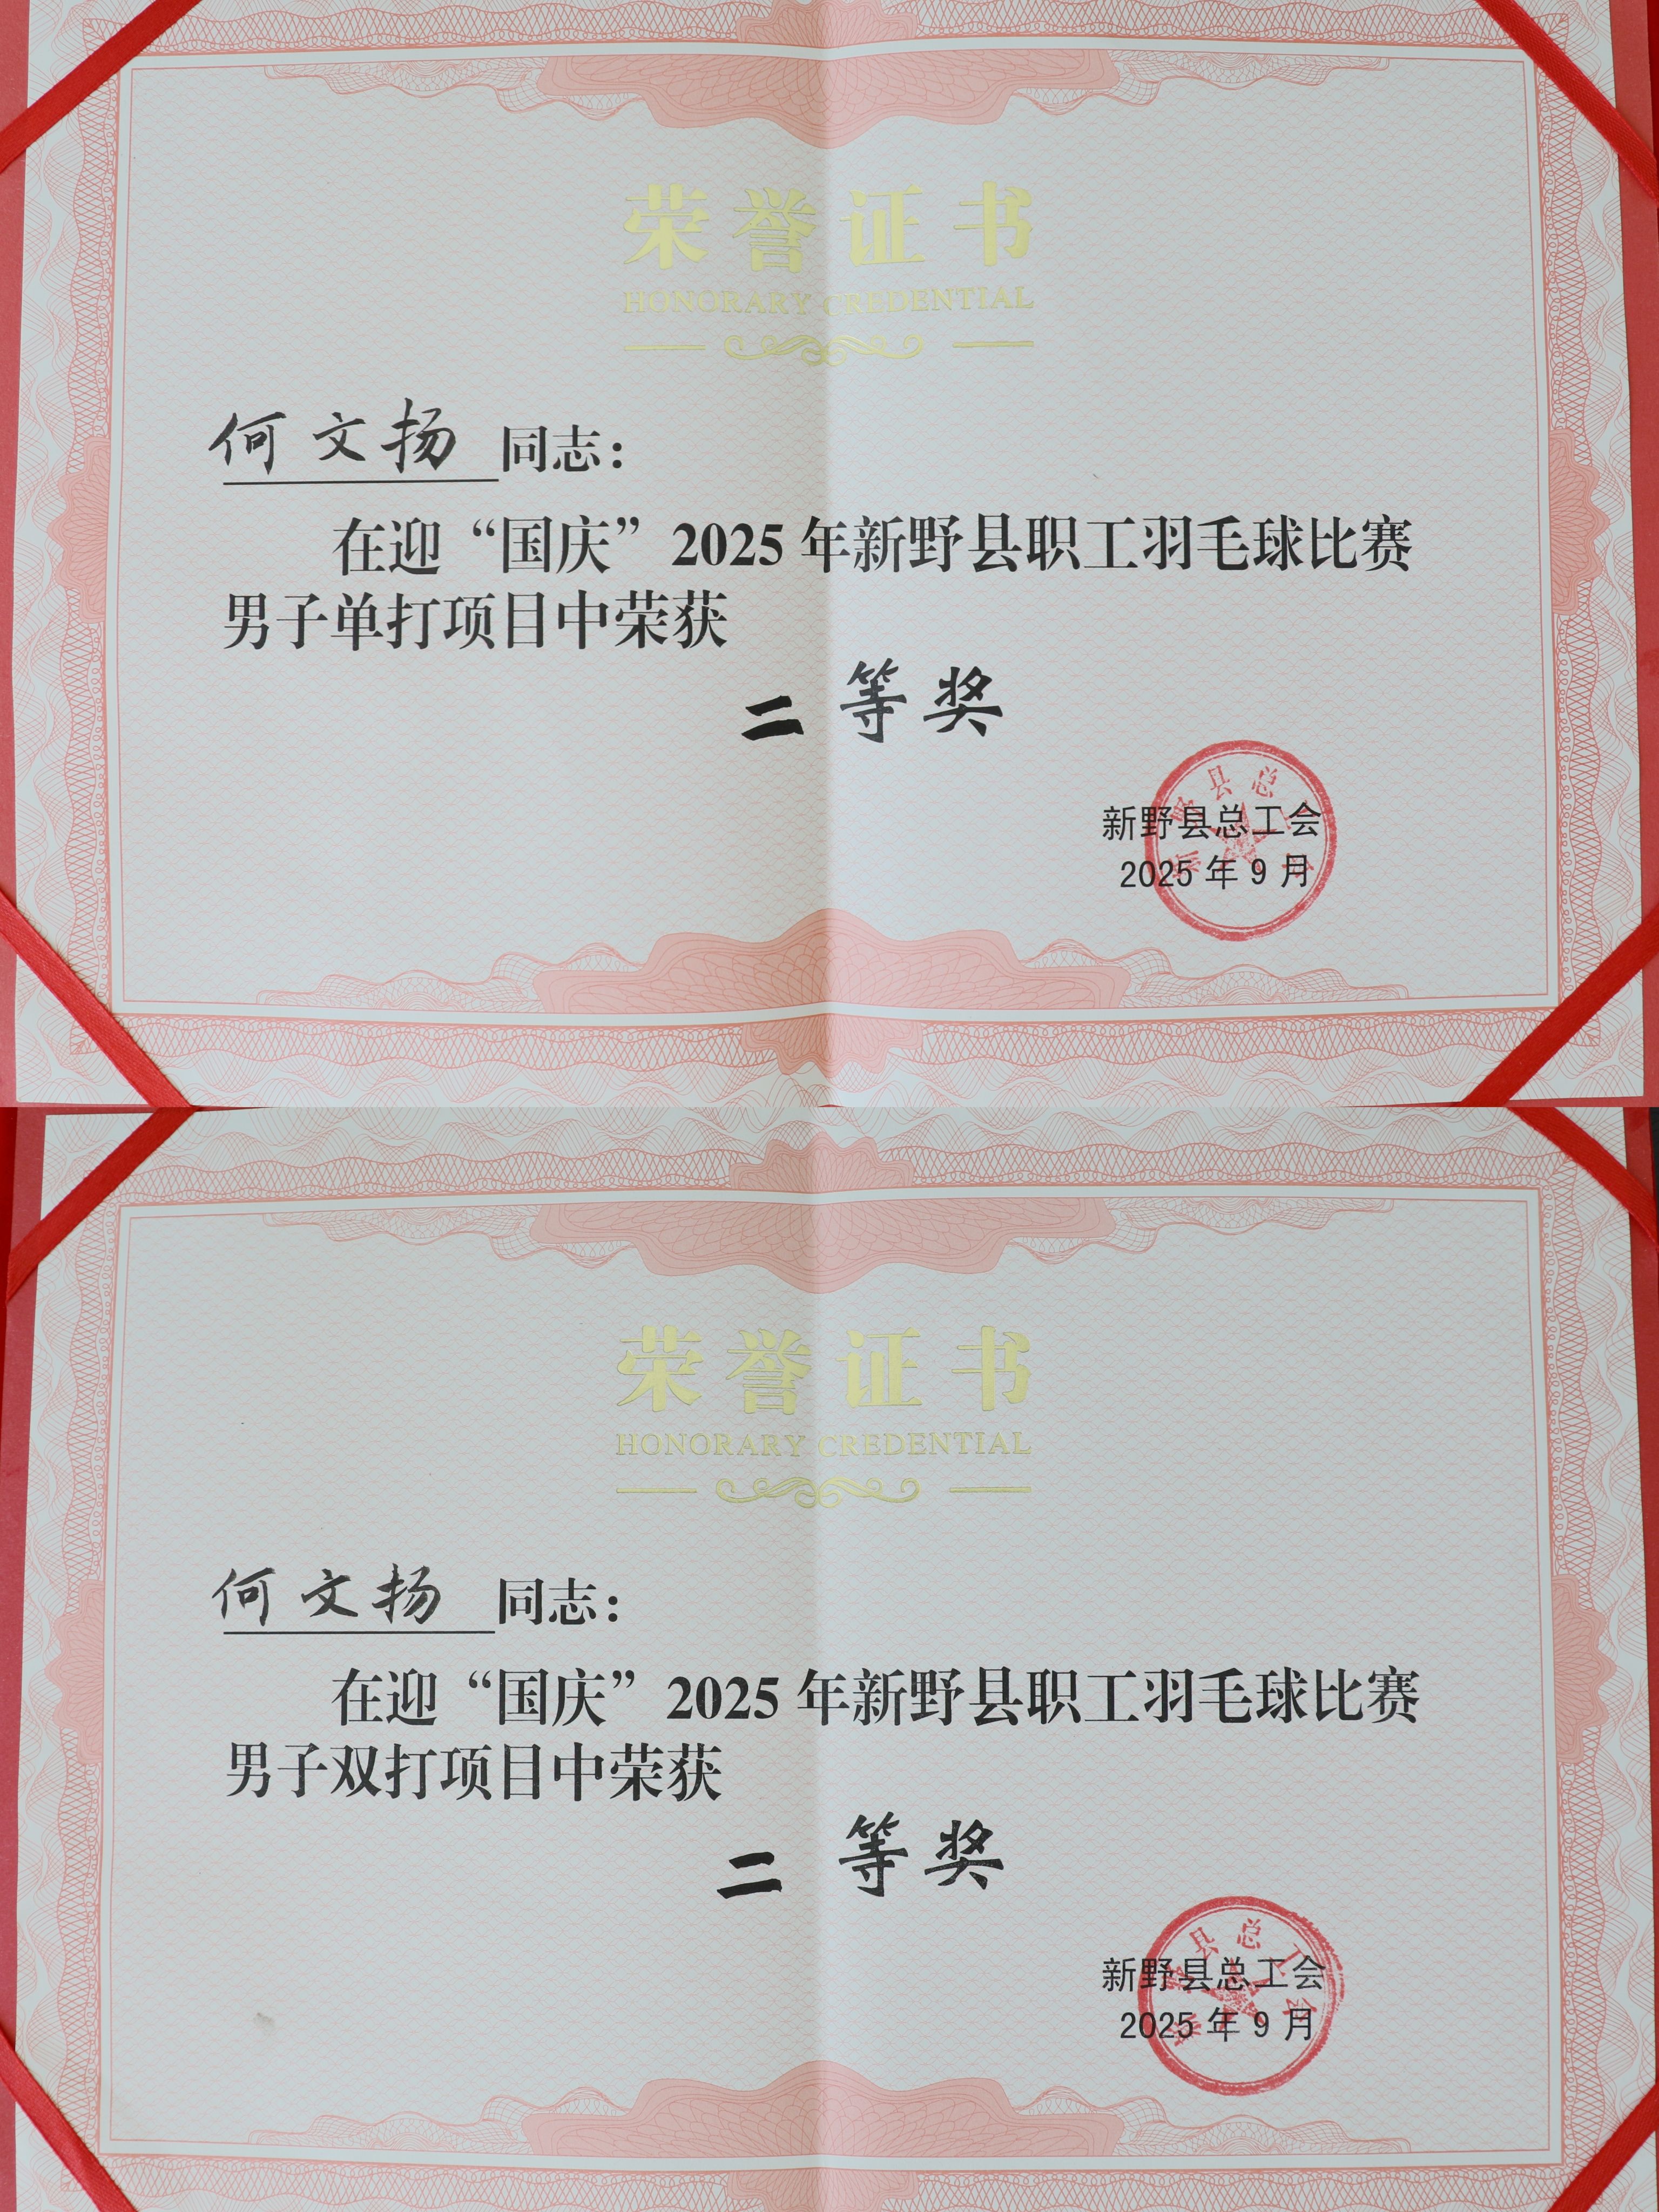 荣誉证书
HONORARY CREDENTIAL
何文扬 同志：
在迎“国庆”2025年新野县职工羽毛球比赛
男子单打项目中荣获
二等奖
新野县总工会
2025年9月
新野县总工会
荣誉证书
HONORARY CREDENTIAL
何文扬 同志：
在迎“国庆”2025年新野县职工羽毛球比赛
男子双打项目中荣获
二等奖
新野县总工会
2025年9月
新野县总工会